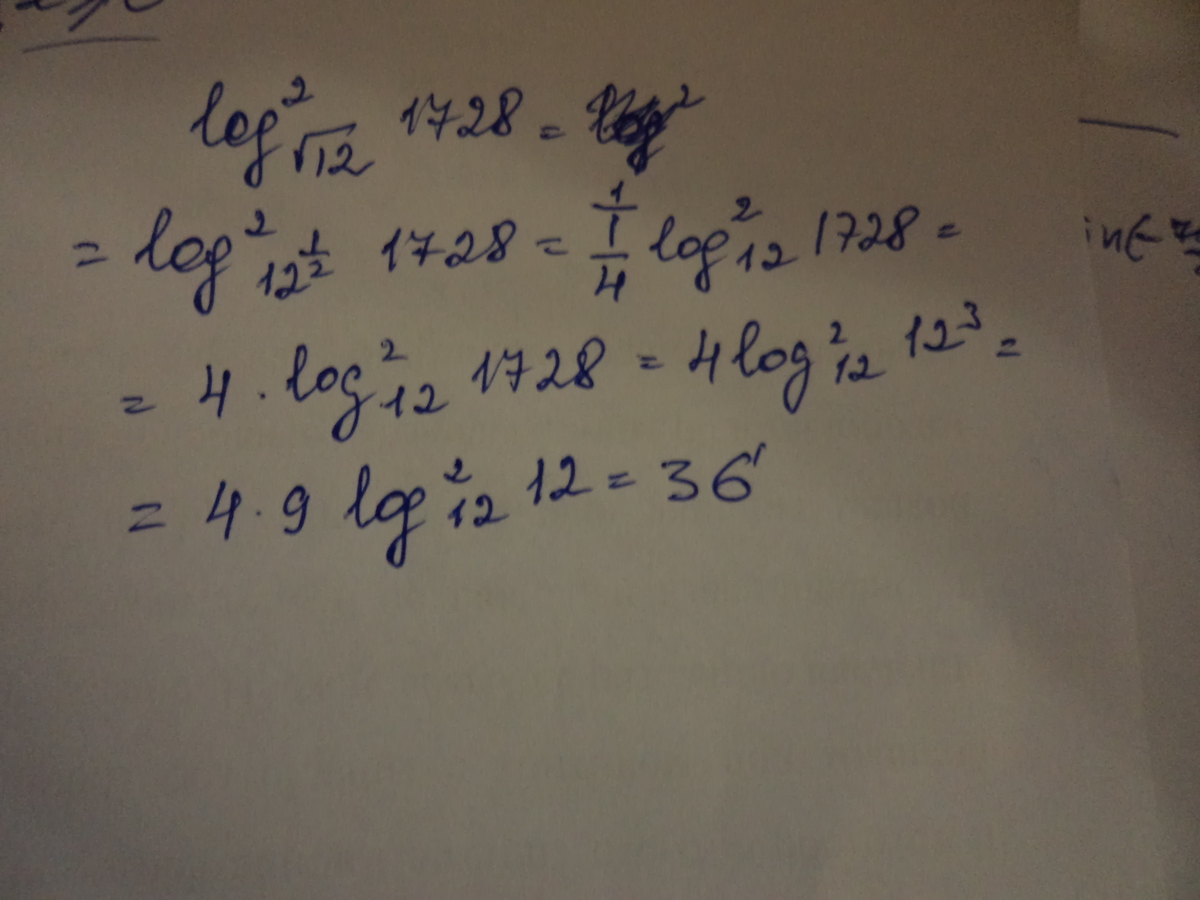 log²_√12 1728 =
= log²_12^½ 1728 = 1/(1/4) log²_12 1728 =
= 4 · log²_12 1728 = 4 log²_12 12³ =
= 4 · 9 log²_12 12 = 36